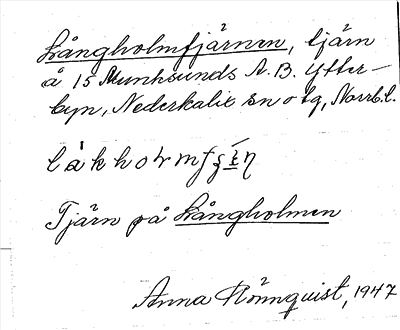 Långholmfjärnen, tjärn
å 15 Munksunds A.B. Ytter-
byn, Nederkalix sn o tg, Norrb.l.
Tjärn på Långholmen
Anna Rönnquist, 1947